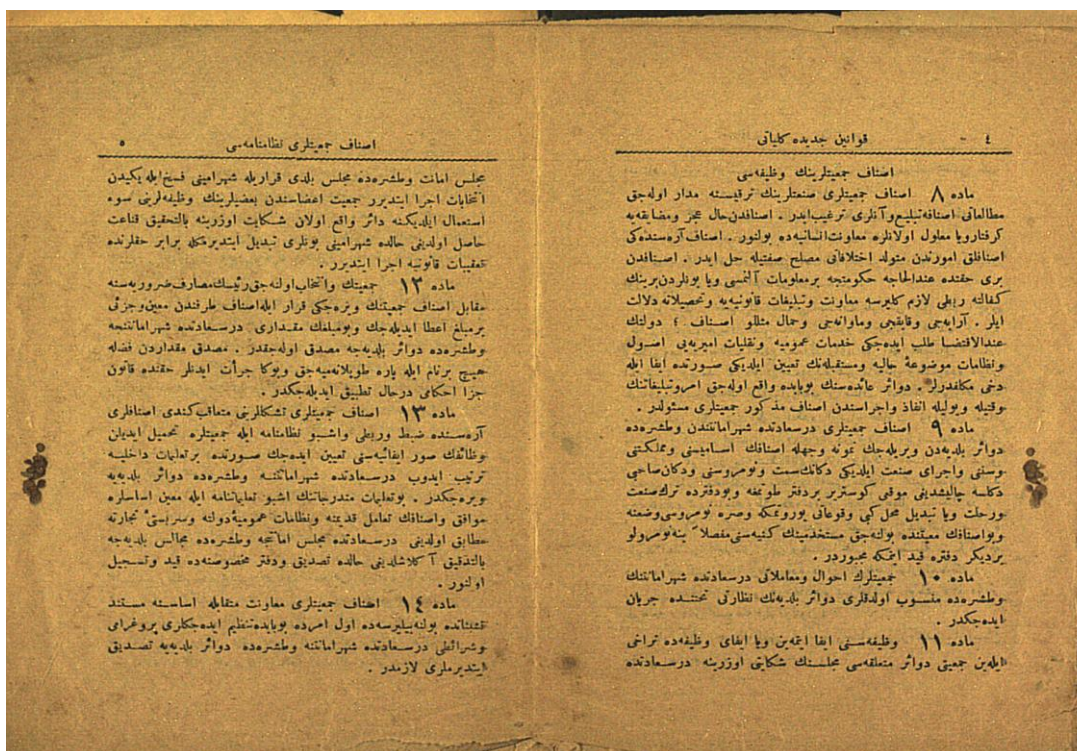 ٤ - قوانین جدیده کلیاتی
اصناف جمعیتلرینك وظیفه‌سی
ماده ٨ اصناف جمعیتلری صنعتلرینك ترقیسنه مدار اوله‌جق
مطالعاتی اصنافه تبلیغ وآنلری ترغیب ایدر . اصنافدن حال عجز ومضایقه‌یه
گرفتار ویا معلول اولانلره معاونت انسانیه‌ده بولنور . اصناف آره‌سنده‌کی
اصنافلق امورندن متولد اختلافاتی مصلح صفتیله حل ایدر . اصنافدن
بری حقنده عندالحاجه حکومتجه برمعلومات آلنمسی ویا بونلردن برینك
کفالته ربطی لازم کلیرسه معاونت وتبلیغات قانونیه‌یه وتحصیلاته دلالت
ایلر . آرابه‌جی وقایقجی وماونه‌جی وحمال مثللو اصناف ؛ دولتك
عندالاقتضا طلب ایده‌جکی خدمات عمومیه ونقلیات امیریه‌یی اصول
ونظامات موضوعهٔ حالیه ومستقبله‌نك تعیین ایلدیکی صورتده ایفا ایله
دخی مکلفدرلر . دوائر عائده‌سنك بوبابده واقع اوله‌جق امر وتبلیغاتنك
وقتیله وبولیله انفاذ واجراسندن اصناف مذکور جمعیتلری مسئولدر .
ماده ٩ اصناف جمعیتلری درسعادتده شهرامانتندن وطشره‌ده
دوائر بلدیه‌دن ویریله‌جك نمونه وجهله اصنافك اسامیسنی ومملکتنی
وسننی واجرای صنعت ایلدیکی دکانك سمت ونومروسنی ودکان صاحبی
دکلسه چالیشدیغی موقعی کوستریر بردفتر طوتمغه وبودفترده ترك صنعت
ورحلت ویا تبدیل محل کبی وقوعاتی یوروتمکه وصره نومروسی وضعنه
وبواصنافك معیتنده بوله‌نجق مستخدمینك کنیه‌سنی مفصلاً ینه نومرولو
بردیکر دفتره قید ایتمکه مجبوردر .
ماده ١٠ جمعیتلرك احوال ومعاملاتی درسعادتده شهرامانتنك
وطشره‌ده منسوب اولدقلری دوائر بلدیه‌نك نظارتی تحتنده جریان
ایده‌جکدر .
ماده ١١ وظیفه‌سنی ایفا ایتمه‌ین ویا ایفای وظیفه‌ده تراخی
ایله‌ین جمعیتی دوائر متعلقه‌سی مجلسنك شکایتی اوزرینه درسعادتده
اصناف جمعیتلری نظامنامه‌سی ٥
مجلس امانت وطشره‌ده مجلس بلدی قراریله شهرامینی فسخ ایله یکیدن
انتخابات اجرا ایتدیرر جمعیت اعضاسندن بعضیلرینك وظیفه‌لرینی سوء
استعمال ایلدیکنه دائر واقع اولان شکایت اوزرینه بالتحقیق قناعت
حاصل اولدیغی حالده شهرامینی بونلری تبدیل ایتدیرمکله برابر حقلرنده
تعقیبات قانونیه اجرا ایتدیرر .
ماده ١٢ جمعیتك وانتخاب اوله‌نجق رئیسك مصارف ضروریه‌سنه
مقابل اصناف جمعیتنك ویره‌جکی قرار ایله اصناف طرفندن معین وجزئی
برمبلغ اعطا ایدیله‌جك وبومبلغك مقداری درسعادتده شهرامانتنجه
وطشره‌ده دوائر بلدیه‌جه مصدق اوله‌جقدر . مصدق مقداردن فضله
هیچ برنام ایله پاره طوپلانه‌میه‌جق وبوکا جرأت ایدنلر حقنده قانون
جزا احکامی درحال تطبیق ایدیله‌جکدر .
ماده ١٣ اصناف جمعیتلری تشکللرینی متعاقب کندی اصنافلری
آره‌سنده ضبط وربطی واشبو نظامنامه ایله جمعیتلره تحمیل ایدیلن
وظائفك صور ایفائیه‌سنی تعیین ایده‌جك صورتده برتعلیمات داخلیه
ترتیب ایدوب درسعادتده شهرامانتنه وطشره‌ده دوائر بلدیه‌یه
ویره‌جکدر . بوتعلیمات مندرجاتنك اشبو تعلیماتنامه ایله معین اساسلره
موافق واصنافك تعامل قدیمنه ونظامات عمومیهٔ دولته وسربستئ تجارته
مطابق اولدیغی درسعادتده مجلس امانتجه وطشره‌ده مجالس بلدیه‌جه
بالتدقیق آکلاشلدیغی حالده تصدیق ودفتر مخصوصنه‌ده قید وتسجیل
اولنور .
ماده ١٤ اصناف جمعیتلری معاونت متقابله اساسنه مستند
تشبثاتده بولنه‌بیلیرسه‌ده اول امرده بوبابده تنظیم ایده‌جکلری پروغرامی
وشرائطی درسعادتده شهرامانتنه وطشره‌ده دوائر بلدیه‌یه تصدیق
ایتدیرملری لازمدر .